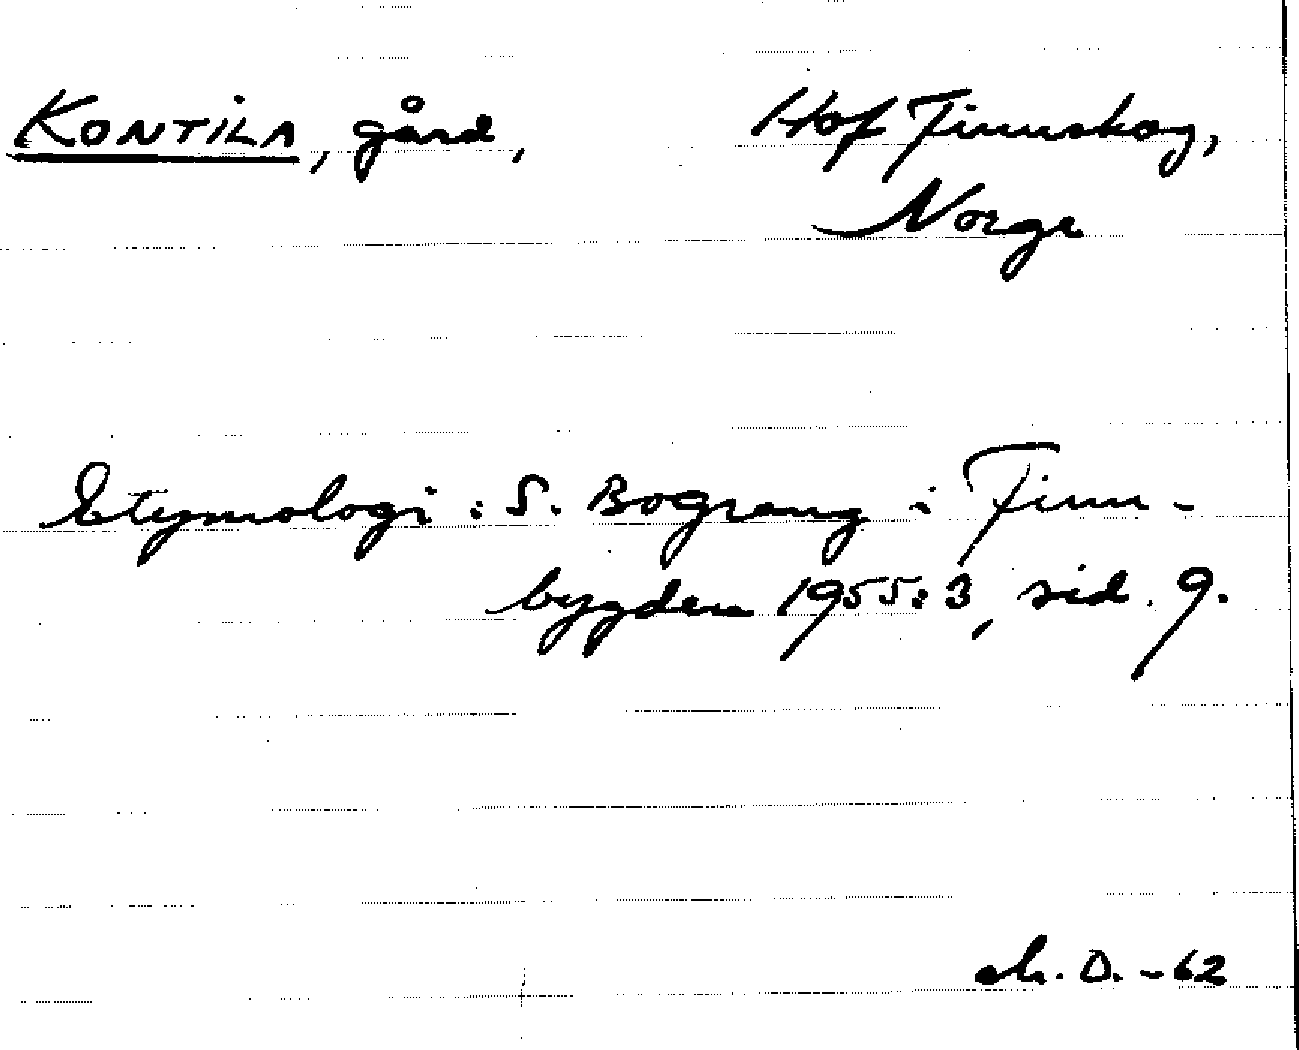 KONTILA, gård, Hof Finnskog,
Norge
Etymologi: S. Bograng i Finn-
bygden 1955:3, sid. 9.
D. -62